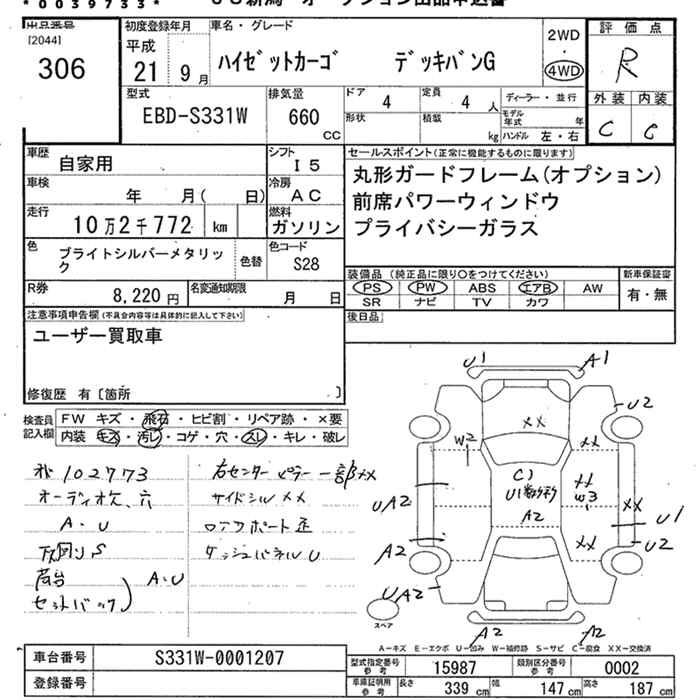 *0039733*
出品番号
[2044]
306
初度登録年月
平成
21 9月
車名・グレード
ハイゼットカーゴ デッキバンG
2WD
・
4WD
評価点
R
外装 内装
C C
型式
EBD-S331W
排気量
660
CC
ドア 4
定員 4 人
形状
積載 kg
ディーラー・並行
モデル年式 年
ハンドル 左・右
車歴 自家用
シフト I5
車検 年 月( 日)
冷房 AC
走行 10万2千772 km
燃料 ガソリン
色 ブライトシルバーメタリック
色替
色コード S28
R券 8,220円
名変通知期限 月 日
セールスポイント(正常に機能するものに限ります)
丸形ガードフレーム(オプション)
前席パワーウィンドウ
プライバシーガラス
装備品 (純正品に限り〇をつけてください)
PS PW ABS エアB AW
SR ナビ TV カワ
新車保証書
有・無
後日品
注意事項申告欄(不具合内容等は具体的に記入して下さい)
ユーザー買取車
修復歴 有〔箇所 〕
検査員記入欄
FW キズ・飛石・ヒビ割・リペア跡・×要
内装・キズ・汚レ・コゲ・穴・スレ・キレ・破レ
102773
オーディオ欠、穴
A・U
下回りS
荷台
セットバック
A・U
右センターピラー一部XX
サイドシルXX
ロアサポート歪
ダッシュパネルU
U1 A1
U2
XX
W2 XX
C1
U1
XX
W3
A2
UA2
XX
U1
U2
A2
XX
UA2
スペア
A2 A2
A-キズ E-エクボ U-凹み W-補修跡 S-サビ C-腐食 XX-交換済
車台番号 S331W-0001207
登録番号
型式指定番号 参考 15987
類別区分番号 参考 0002
車庫証明用 参考 長さ 339cm 幅 147cm 高さ 187cm